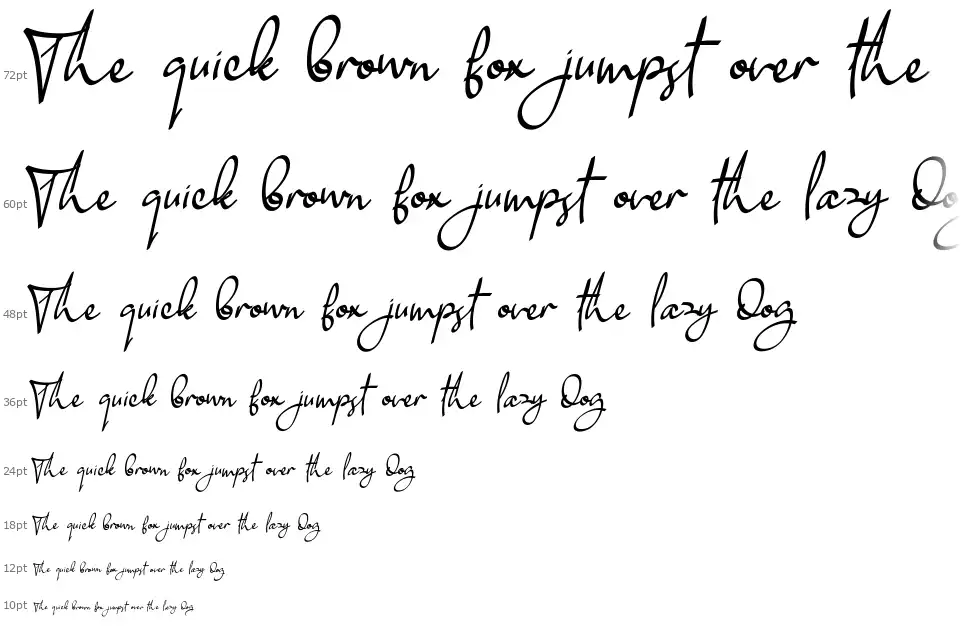 72pt The quick brown fox jumpst over the
60pt The quick brown fox jumpst over the lazy Do
48pt The quick brown fox jumpst over the lazy Dog
36pt The quick brown fox jumpst over the lazy Dog
24pt The quick brown fox jumpst over the lazy Dog
18pt The quick brown fox jumpst over the lazy Dog
12pt The quick brown fox jumpst over the lazy Dog
10pt The quick brown fox jumpst over the lazy Dog